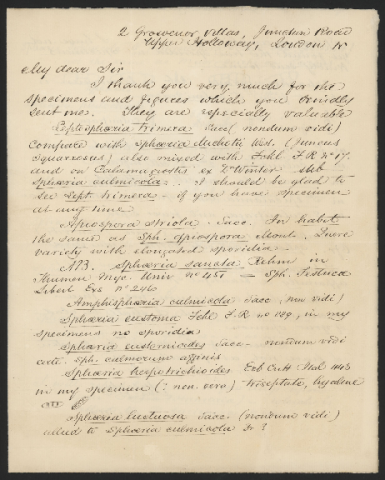 2 Grosvenor Villas, Junction Road
Upper Holloway, London N
My dear Sir
I thank you very much for the
specimens and figures which you kindly
sent me. They are especially valuable
Leptosphæria trimera (nondum vidi)
Compare with Sphæria Wds. (Juncus
squarrosus) also mixed with Fckl F.R. No
and on Calamagrostis ex De Winter sub
Sphæria culmicola... I should be glad to
see Lept. trimera - if you have specimen
at any time
Apiospora Striola - Sacc. For habit
the same as Sph. apiospora Mont.
variety with elongated sporidia -
N.B. Sphæria sancta Rehm in
Thumen Myc. Univ No 451 = Sph. Festucæ
Libert Exs No 246
Amphisphæria culmicola Sacc (non vidi)
Sphæria eustoma Fckl F.R. no 189, in my
specimens no sporidia
Sphæria eustomoides Sacc - nondum vidi
Sph. culmorum affinis
Sphæria herpotrichoides
in my specimen (: non vero) 4-septate, hyaline
Sphæria luctuosa Sacc (nondum vidi)
allied to Sphæria culmicola Fr ?